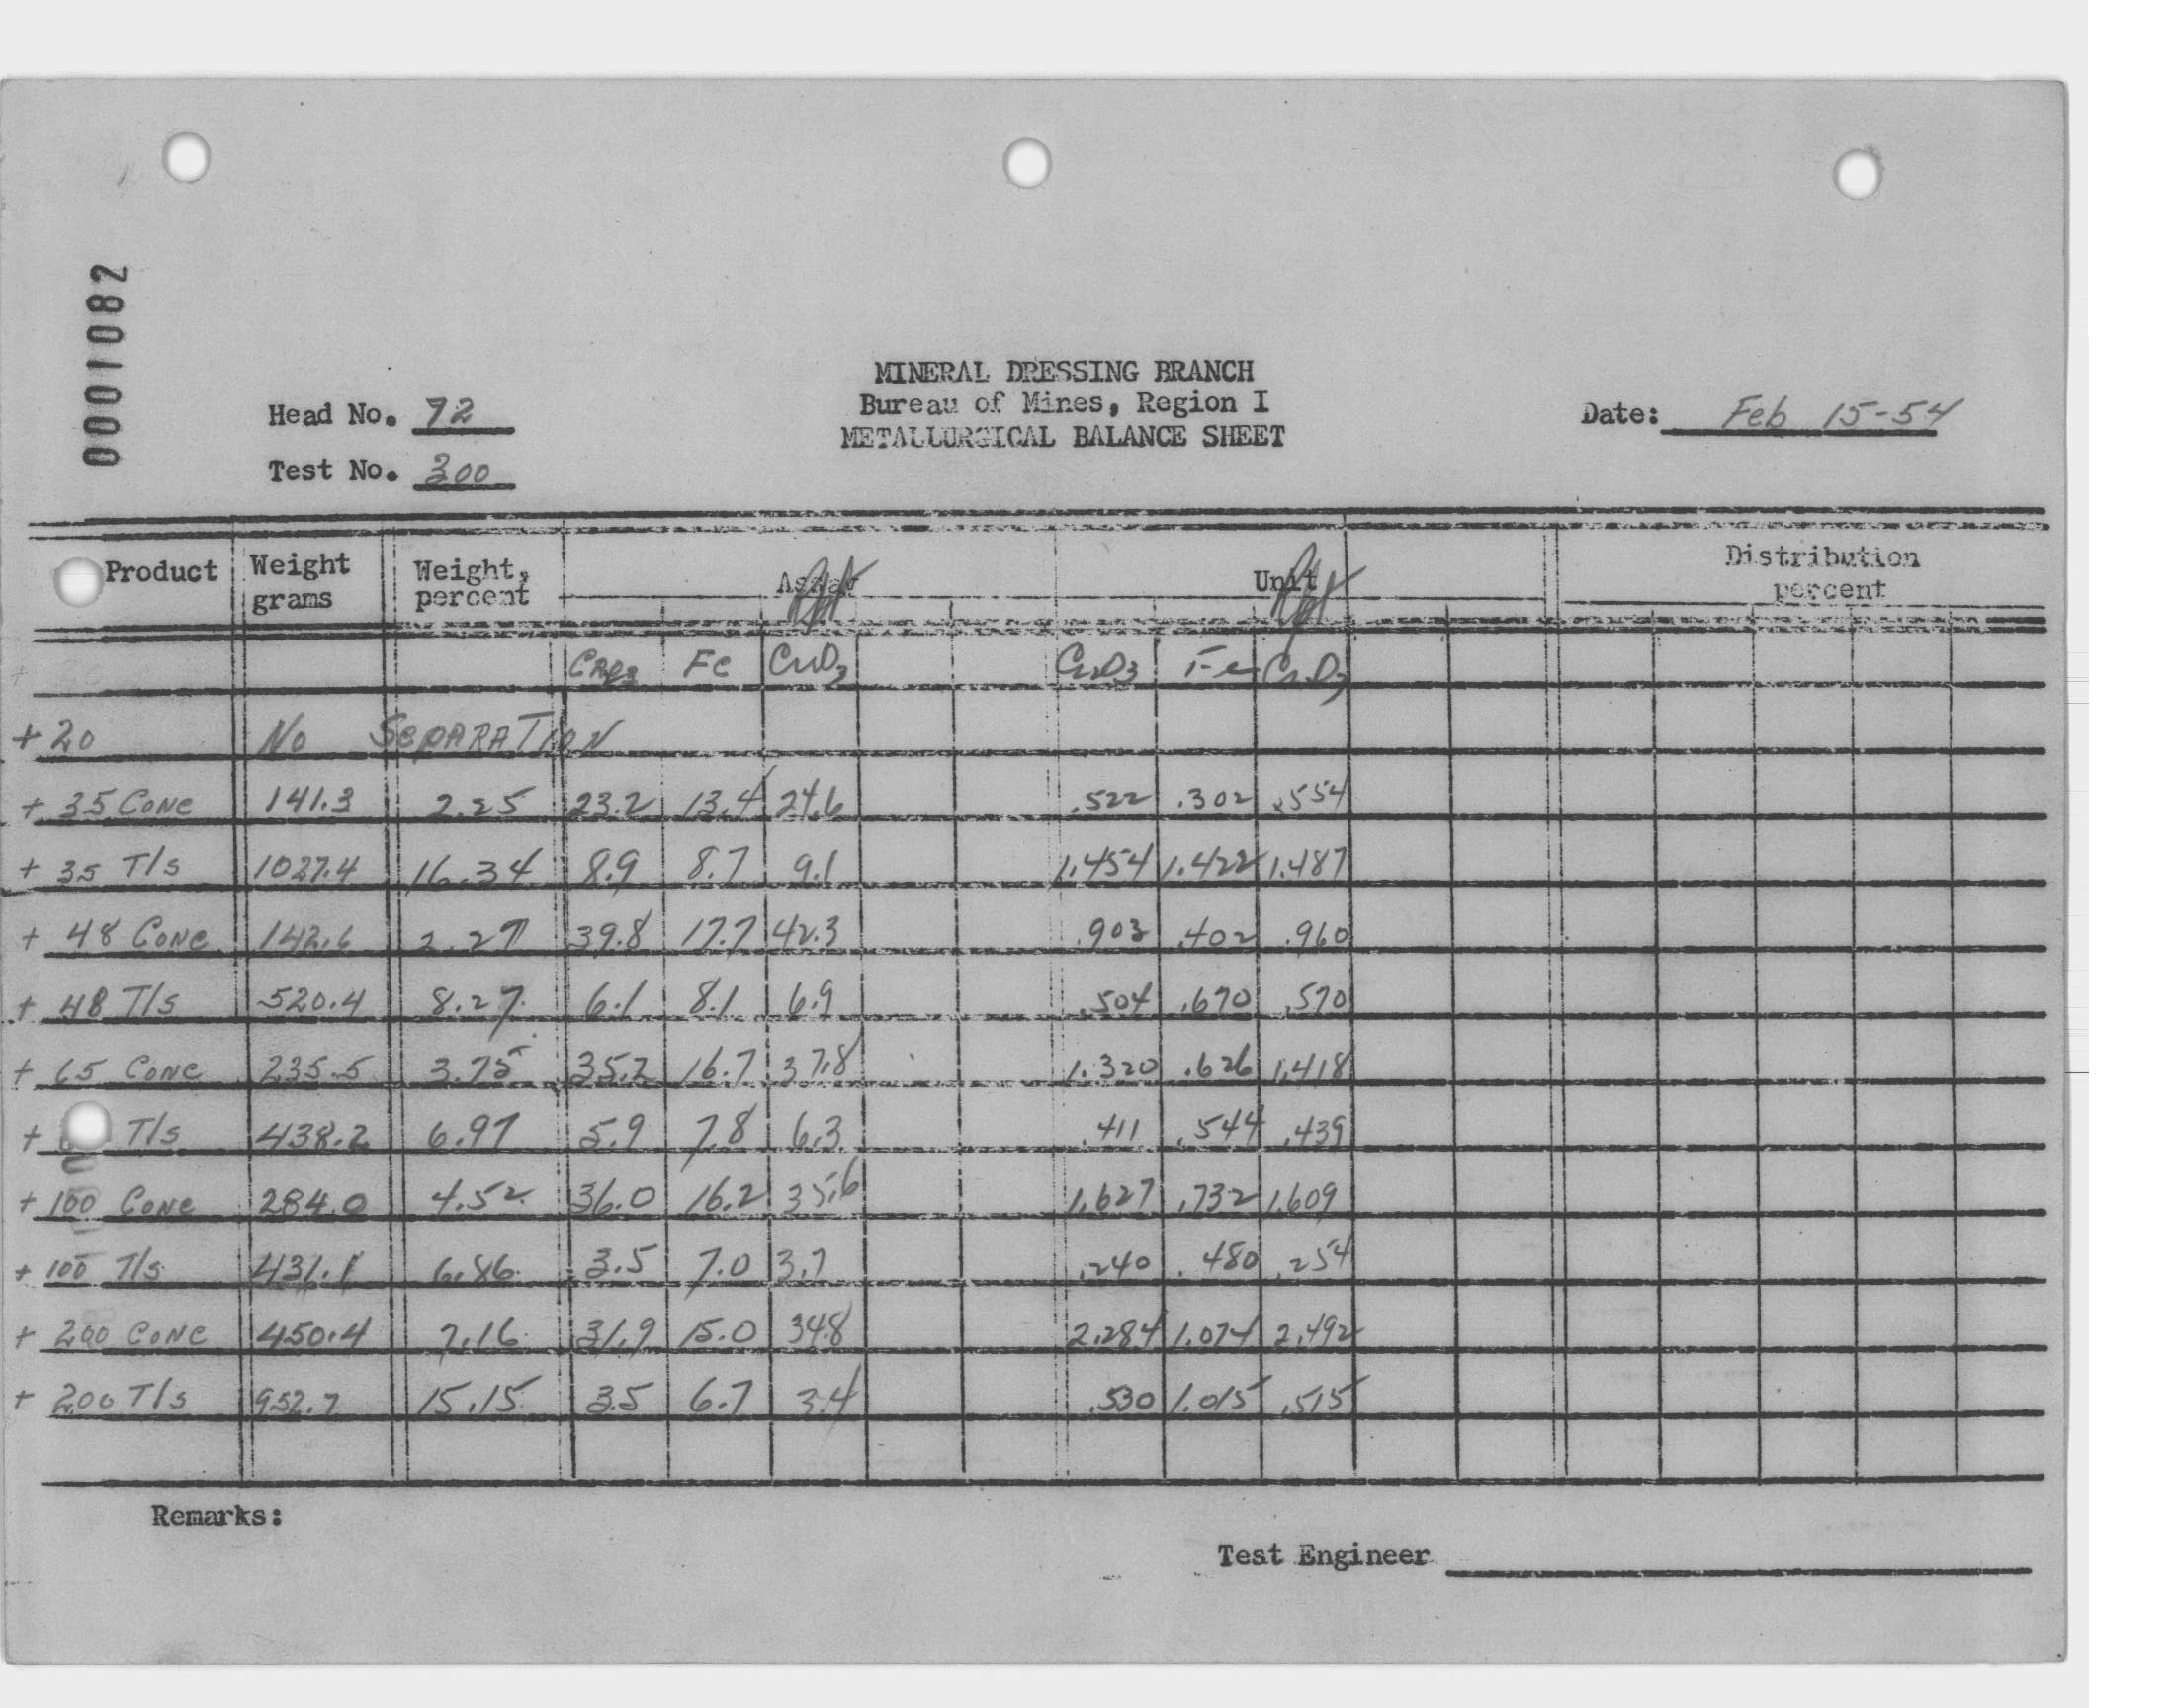 0001082
MINERAL DRESSING BRANCH
Bureau of Mines, Region I
METALLURGICAL BALANCE SHEET
Head No. 72
Test No. 300
Date: Feb 15-54
Product Weight grams Weight, percent Assay Unit Distribution percent
Rpt Rpt
CrO3 Fe CrO3 CrO3 Fe CrO3
+ 20 No SEPARATION
+ 35 Conc 141.3 2.25 23.2 13.4 24.6 .522 .302 .554
+ 35 T/s 1027.4 16.34 8.9 8.7 9.1 1.454 1.422 1.487
+ 48 Conc 142.6 2.27 39.8 17.7 42.3 .903 .402 .960
+ 48 T/s 520.4 8.27 6.1 8.1 6.9 .504 .670 .570
+ 65 Conc 235.5 3.75 35.2 16.7 37.8 1.320 .626 1.418
+ T/s 438.2 6.97 5.9 7.8 6.3 .411 .544 .439
+ 100 Conc 284.0 4.52 36.0 16.2 35.6 1.627 .732 1.609
+ 100 T/s 431.1 6.86 3.5 7.0 3.7 .240 .480 .254
+ 200 Conc 450.4 7.16 31.9 15.0 34.8 2.284 1.074 2.492
+ 200 T/s 952.7 15.15 3.5 6.7 3.4 .530 1.015 .515
Remarks:
Test Engineer